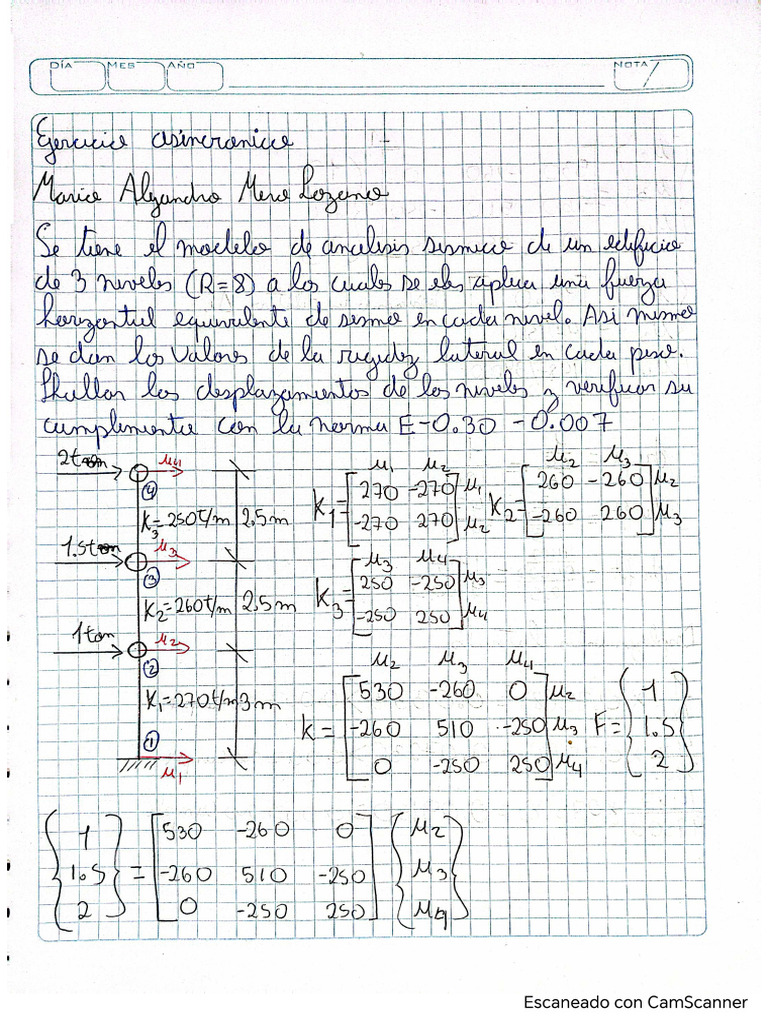 DÍA MES AÑO NOTA
Ejercicio asincronico
Mario Alejandro Mero Lozano
Se tiene el modelo de analisis sismico de un edificio
de 3 niveles (R=8) a los cuales se les aplica una fuerza
horizontal equivalente de sismo en cada nivel. Asi mismo
se dan los valores de la rigidez lateral en cada piso.
Hallar los desplazamientos de los niveles y verificar su
cumplimiento con la norma E-0.30 - 0.007
2ton μ4
④
K3=250t/m 2.5m
1.5ton μ3
③
K2=260t/m 2.5m
1ton μ2
②
K1=270t/m 3m
①
μ1
μ1 μ2
K1= [270 -270] μ1
[-270 270] μ2
μ2 μ3
K2= [260 -260] μ2
[-260 260] μ3
μ3 μ4
K3= [250 -250] μ3
[-250 250] μ4
μ2 μ3 μ4
[530 -260 0] μ2
K= [-260 510 -250] μ3
[0 -250 250] μ4
F= {1
1.5
2}
{1} [530 -260 0] {μ2}
{1.5} = [-260 510 -250] {μ3}
{2} [0 -250 250] {μ4}
Escaneado con CamScanner